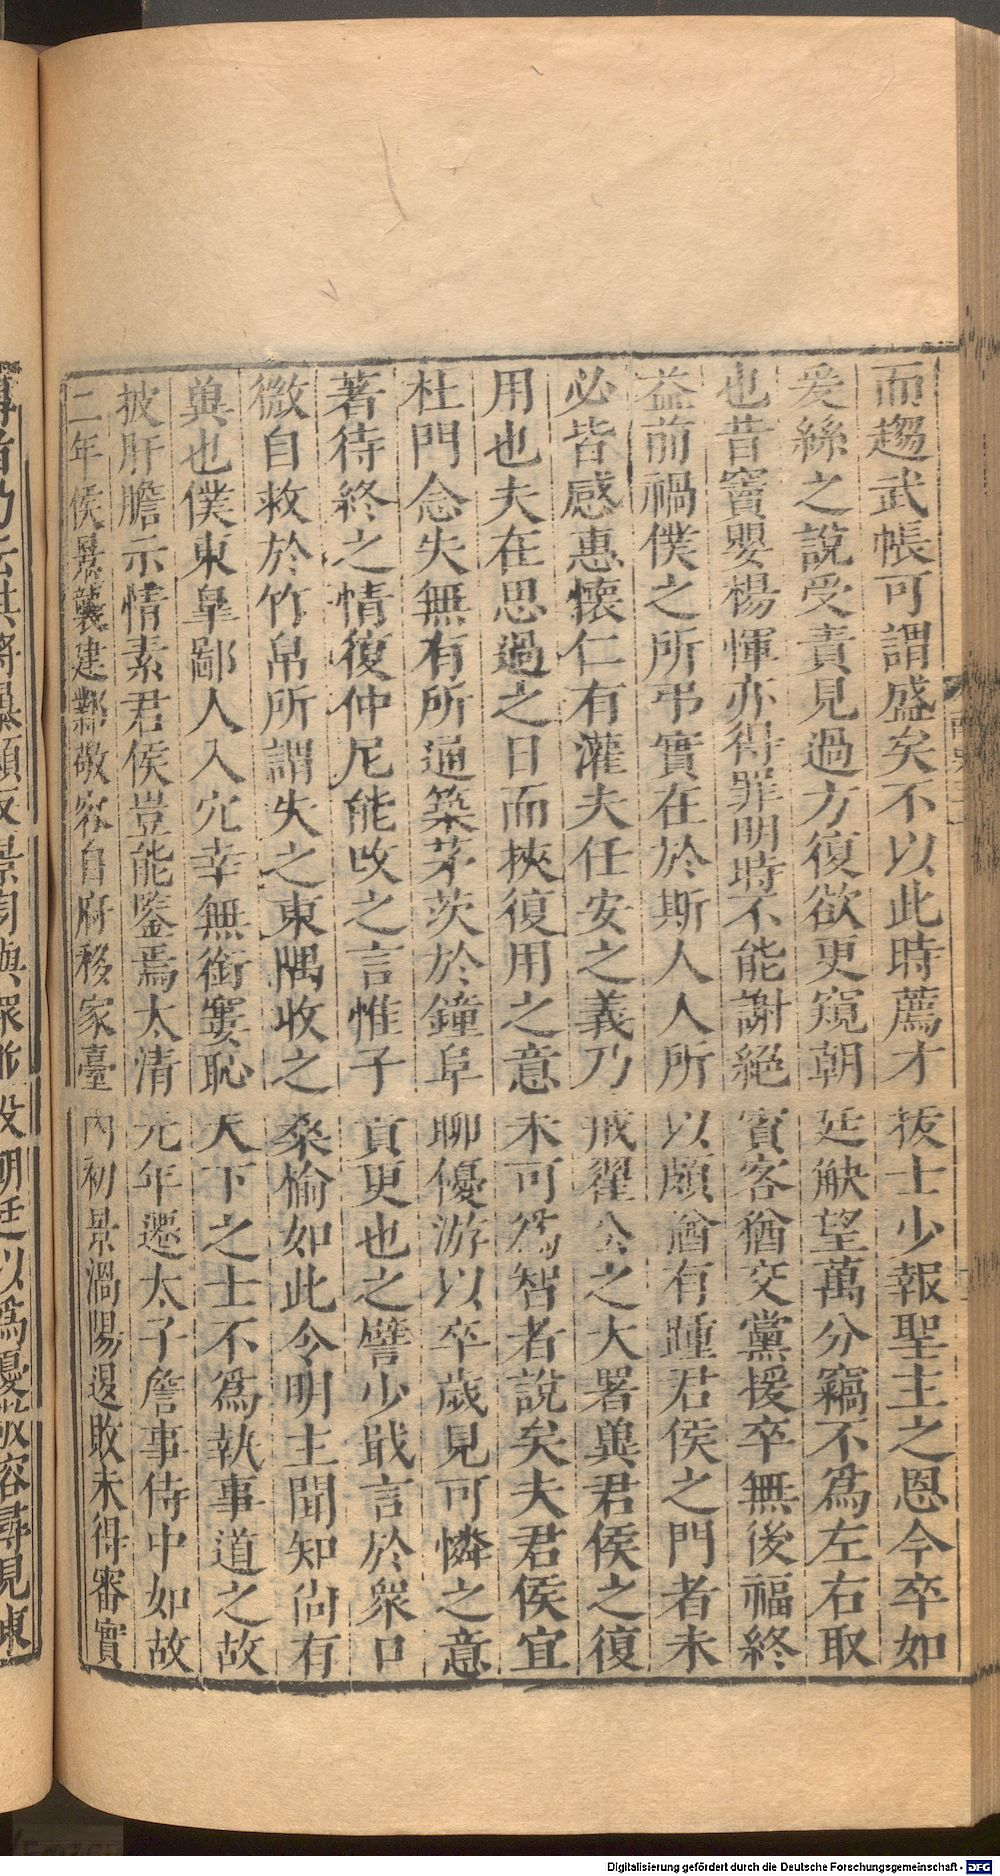 而趨武帳可謂盛矣不以此時薦才拔士少報聖主之恩今卒如
爰絲之說受責見過方復欲更窺朝廷觖望萬分竊不為左右取
也昔竇嬰楊惲亦得罪明時不能謝絕賓客猶交黨援卒無後福終
益前禍僕之所弔實在於斯人人所以頗猶有踵君侯之門者未
必皆感惠懷仁有灌夫任安之義乃戒翟公之大署冀君侯之復
用也夫在思過之日而挾復用之意未可為智者說矣夫君侯宜
杜門念失無有所通築茅茨於鐘阜聊優游以卒歲見可憐之意
著待終之情復仲尼能改之言惟子貢更也之譬少戢言於衆口
微自救於竹帛所謂失之東隅收之桑榆如此令明主聞知尚有
兾也僕東皐鄙人入穴幸無銜窶恥天下之士不為執事道之故
披肝膽示情素君侯豈能鑒焉太清元年遷太子詹事侍中如故
二年侯景襲建鄴敬容自府移家臺內初景渦陽退敗未得審實
Digitalisierung gefördert durch die Deutsche Forschungsgemeinschaft - DFG